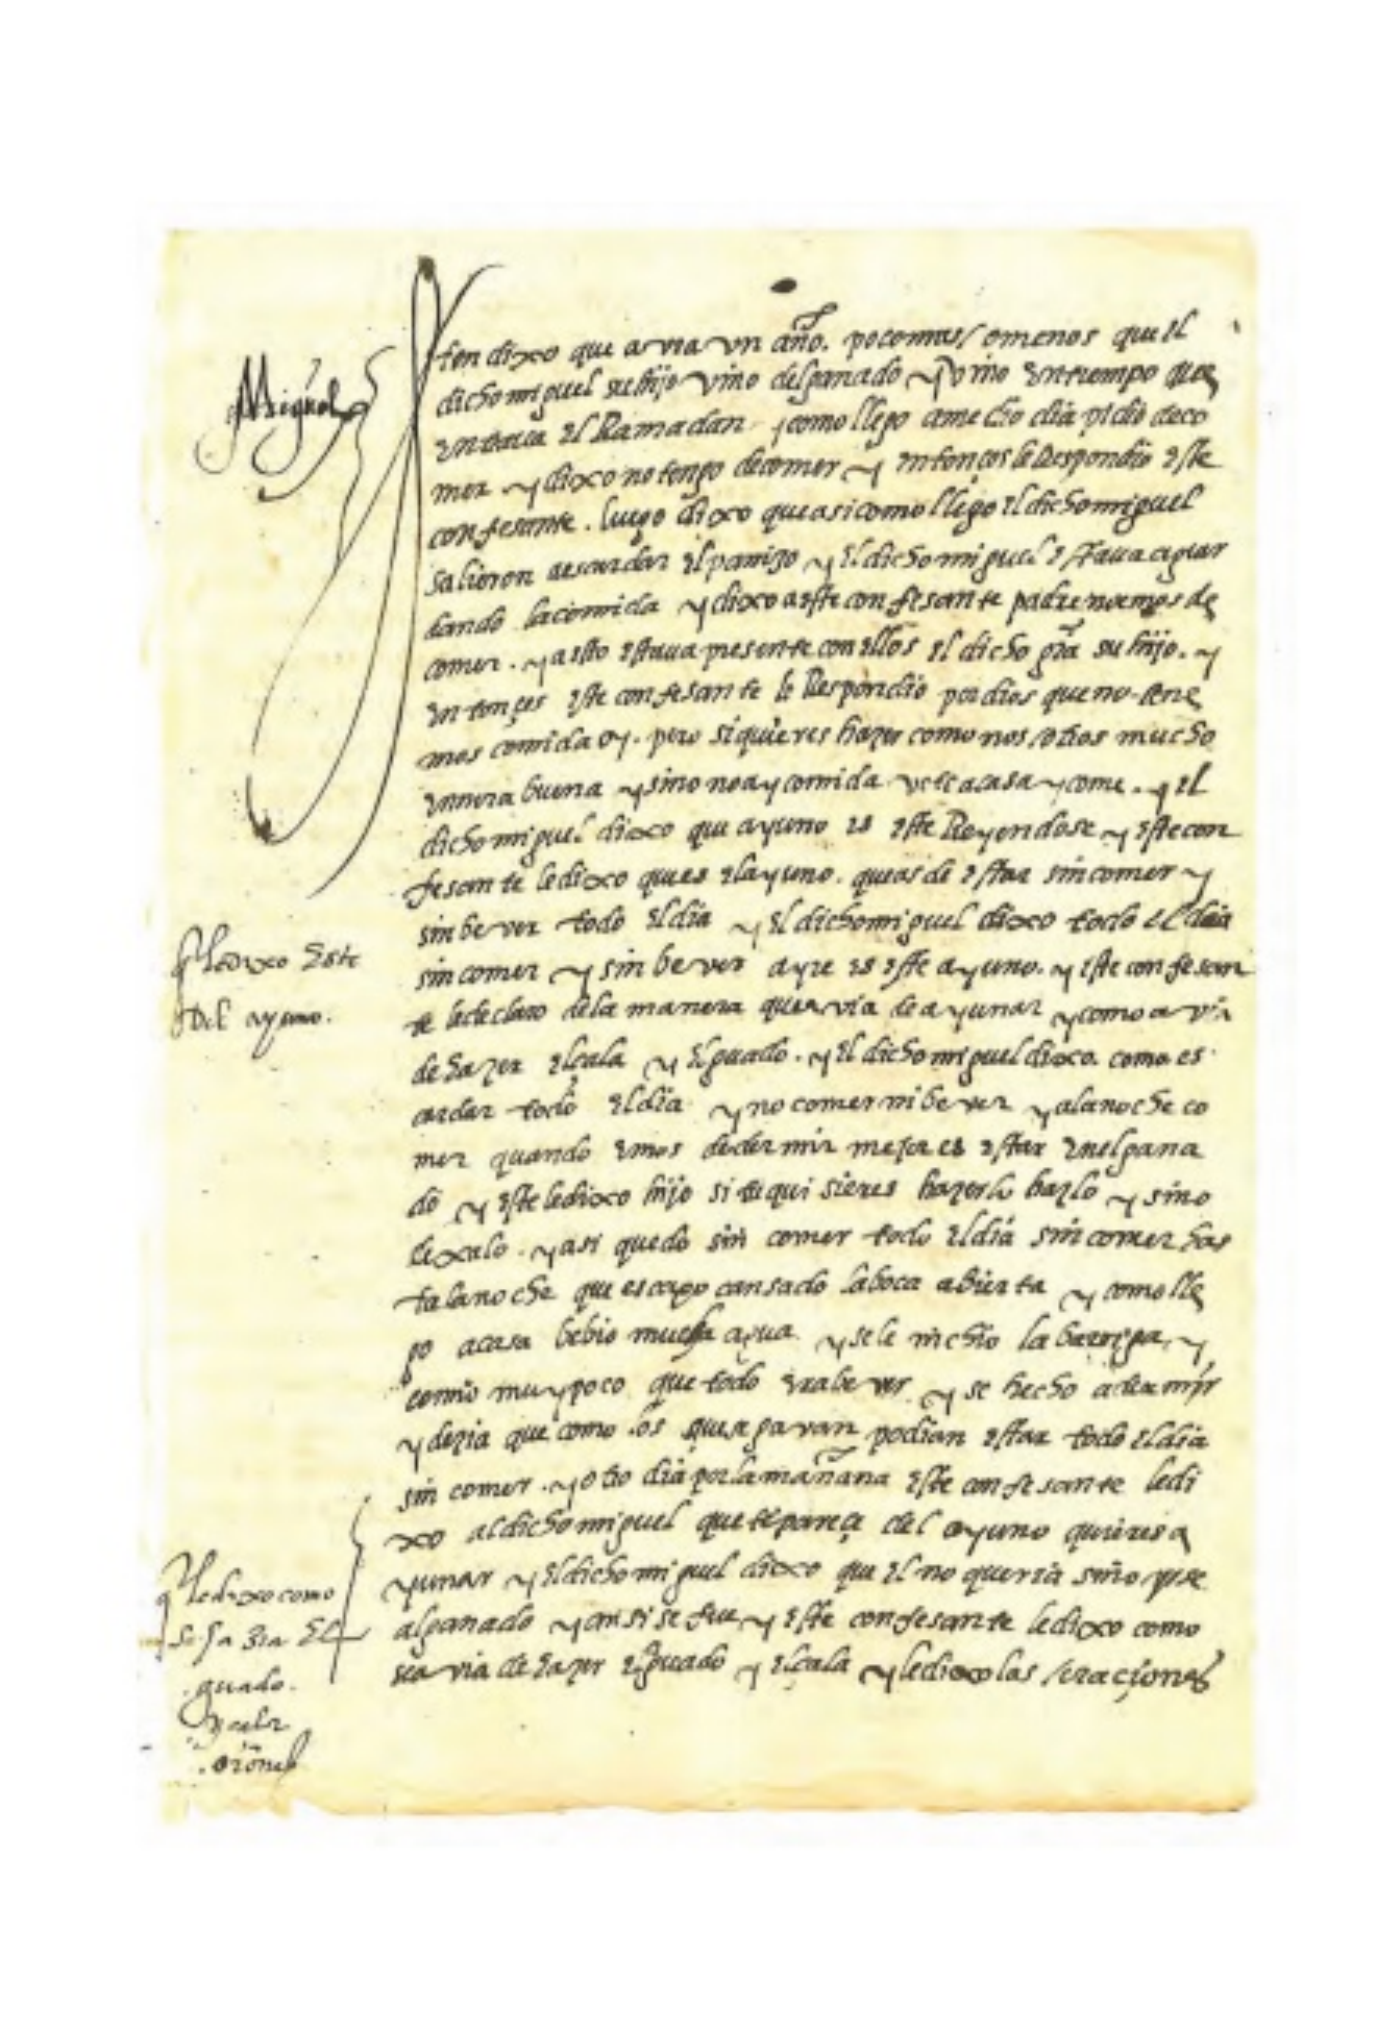 Miguel
Iten dixo que avia un año. poco mas / o menos que el
dicho miguel su hijo vino del ganado y vino en tiempo que
entrava el Ramadan y como llego a medio dia pidio de co
mer y dixo no tengo de comer y entonçes le Respondio este
confesante. luego dixo que asi como llego el dicho miguel
salieron a escardar el panizo y el dicho miguel estava aguar
dando la comida y dixo a este confesante padre no emos de
comer. y a esto estava presente con ellos el dicho gra su hijo. y
entonçes este confesante le Respondio por dios que no tene
mos comida oy. pero si quieres hazer como nos / otros mucho
en ora buena y si no no ay comida vete a casa y come. y el
dicho miguel dixo que ayuno es este Reyendose y este con
fesante le dixo ques el ayuno. que as de estar sin comer y
sin bever todo el dia y el dicho miguel dixo todo el dia
sin comer y sin bever ayre es este ayuno. y este confesan
te le declaro de la manera que avia de ayunar y como avia
de hazer el çala y el guado. y el dicho miguel dixo. como es
cardar todo el dia y no comer ni bever y a la noche co
mer quando emos de dermir mejor es estar en el gana
do y este le dixo hijo si tu quisieres hazerlo hazlo y sino
dexalo. y asi quedo sin comer todo el dia sin comer has
ta la noche que escapo cansado la boca abierta y como lle
go a casa bebio mucha agua y se le incho la barriga y
comio muy poco que todo era bever y se hecho a dermir
y dezia que como los que segavan podian estar todo el dia
sin comer. y otro dia por la mañana este confesante le di
xo al dicho miguel que te pareçe del ayuno quieres a
yunar y el dicho miguel dixo que el no queria sino yrse
al ganado y ansi se fue y este confesante le dixo como
se avia de hazer el guado y el çala y le dixo las / oraçiones
q le dixo este
del ayuno.
q le dixo como
se hazia el
guado.
y çala
oriones